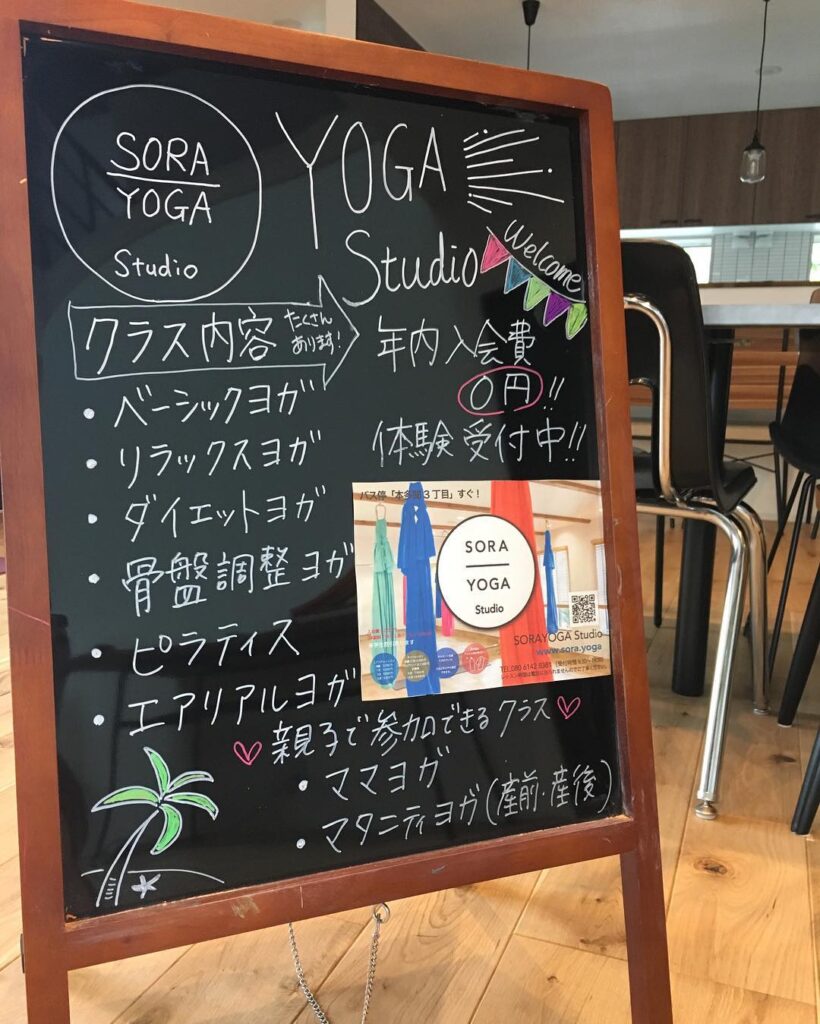 SORA
YOGA
Studio
YOGA
Studio
Welcome
クラス内容
たくさん
あります!
年内入会費
0円!!
体験受付中!!
・ベーシックヨガ
・リラックスヨガ
・ダイエットヨガ
・骨盤調整ヨガ
・ピラティス
・エアリアルヨガ
バス停「本多町3丁目」すぐ!
SORA
YOGA
Studio
SORAYOGA Studio
www.sora.yoga
親子で参加できるクラス
・ママヨガ
・マタニティヨガ(産前・産後)